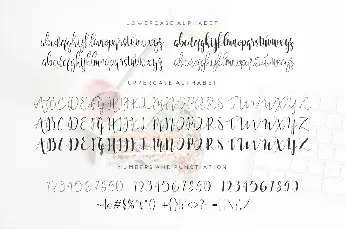 LOWERCASE ALPHABET
abcdefghijklmnopqrstuvwxyz abcdefghijklmnopqrstuvwxyz
abcdefghijklmnopqrstuvwxyz abcdefghijklmnopqrstuvwxyz
UPPERCASE ALPHABET
ABCDEFGHIJKLMNOPQRSTUVWXYZ
ABCDEFGHIJKLMNOPQRSTUVWXYZ
ABCDEFGHIJKLMNOPQRSTUVWXYZ
NUMBERS AND PUNCTUATION
1234567890 1234567890 1234567890